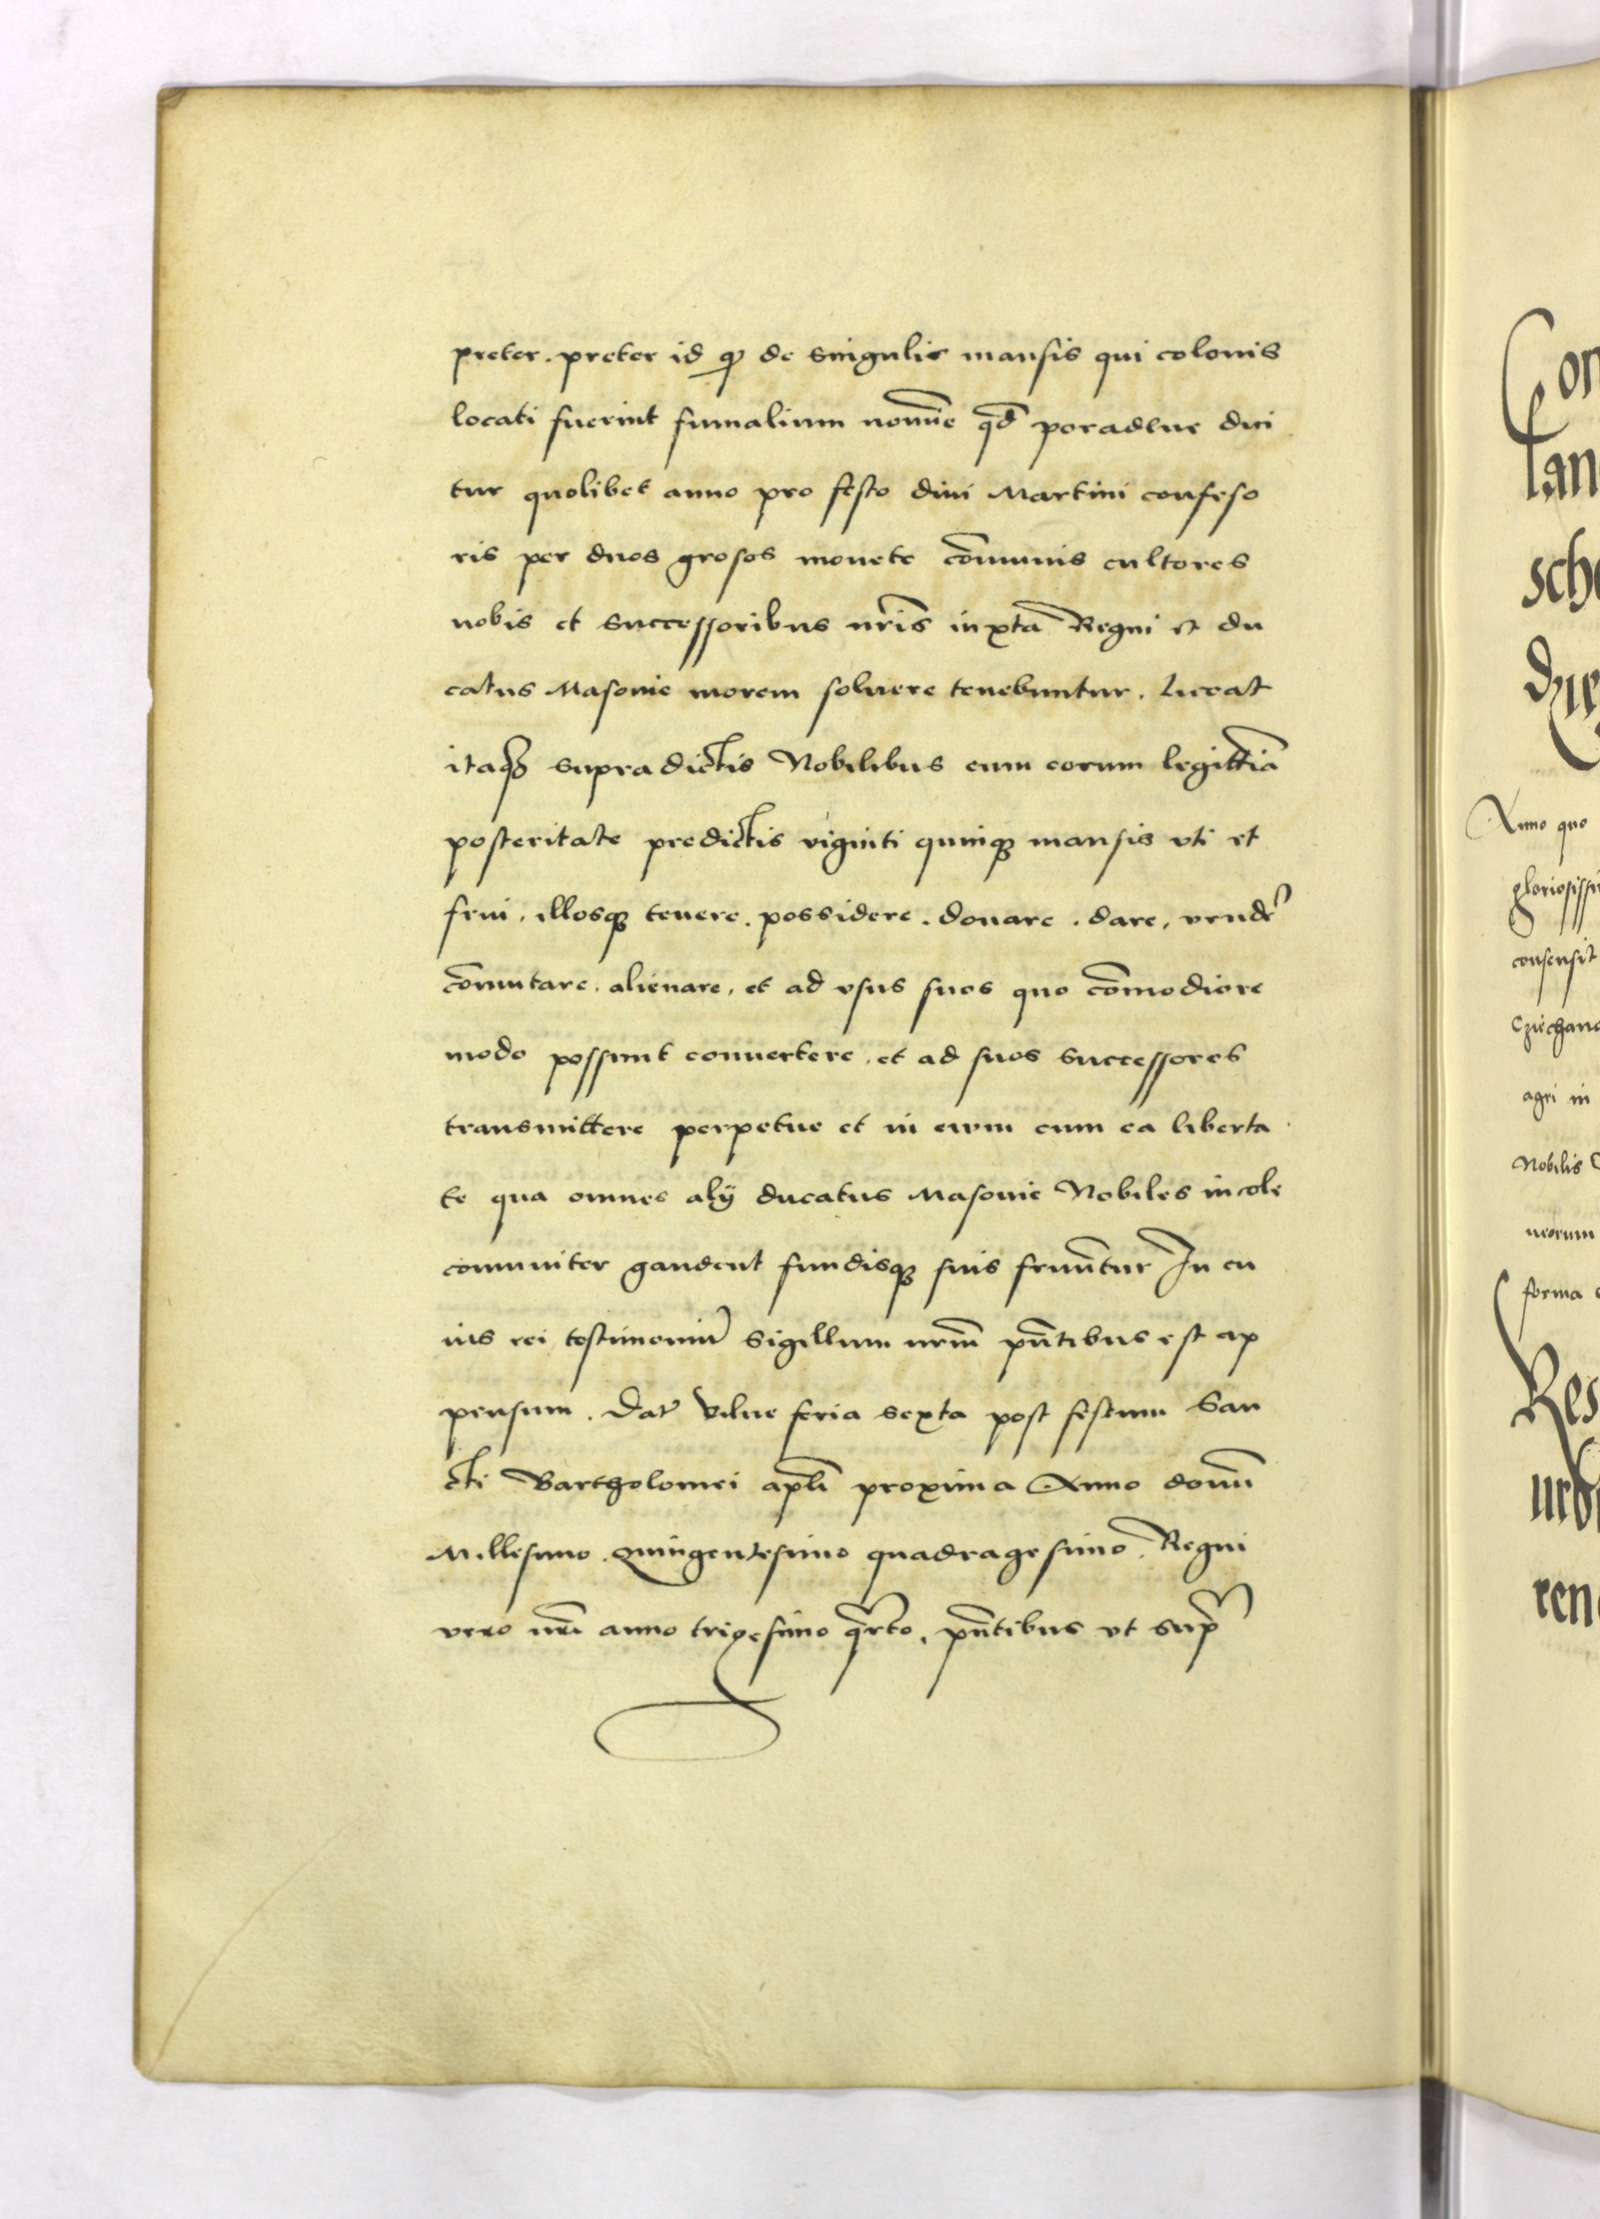 preter. preter id qđ de singulis mansis qui colonis
locati fuerint fumalium nomīe qđ poradlne dici
tur quolibet anno pro festo divi Martini confeso
ris per duos grosos monete cōmunis cultores
nobis et successoribus nr̄is iuxta Regni et du
catus Masovie morem solvere tenebuntur. Liceat
itaqȝ supradictis Nobilibus cum eorum legittīa
posteritate predictis viginti quinqȝ mansis vti et
frui, illosqȝ tenere. possidere. donare. dare, vender̄
cōmutare. alienare, et ad vsus suos quo cōmodiore
modo possunt convertere. et ad suos successores
transmittere perpetue et in evum cum ea liberta
te qua omnes alij ducatus Masovie Nobiles incole
comuniter gaudent fundisqȝ suis fruūtur In cu
ius rei testimoniū sigillum nr̄m pn̄tibus est ap
pensum. Dat̄ Vilne feria sexta post festum San
cti Bartholomei apl̄i proxima Anno domī
Millesimo. Quingentesimo quadragesimo. Regni
vero nr̄i anno trigesimo qrto. pn̄tibus vt supr
Con
lan
sch
Anno quo
gloriosiss
consensit
Cziechano
agri in
Nobilis
forma
Res